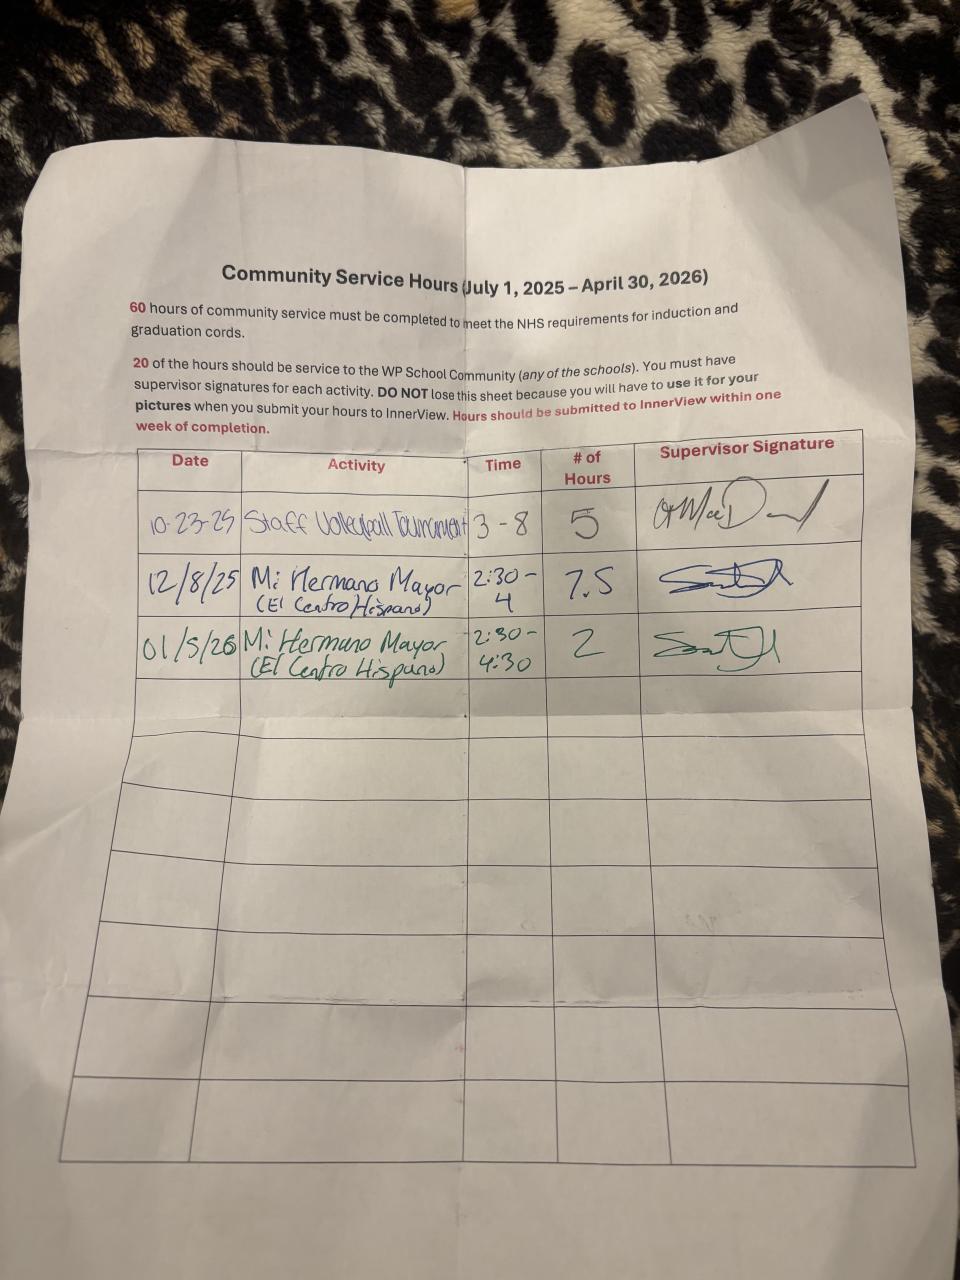 Community Service Hours (July 1, 2025 – April 30, 2026)
60 hours of community service must be completed to meet the NHS requirements for induction and
graduation cords.
20 of the hours should be service to the WP School Community (any of the schools). You must have
supervisor signatures for each activity. DO NOT lose this sheet because you will have to use it for your
pictures when you submit your hours to InnerView. Hours should be submitted to InnerView within one
week of completion.
Date Activity Time # of Hours Supervisor Signature
10-23-25 Staff Volleyball Tournament 3 - 8 5
12/8/25 Mi Hermano Mayor (El Centro Hispano) 2:30 - 4 7.5
01/5/26 Mi Hermano Mayor (El Centro Hispano) 2:30 - 4:30 2